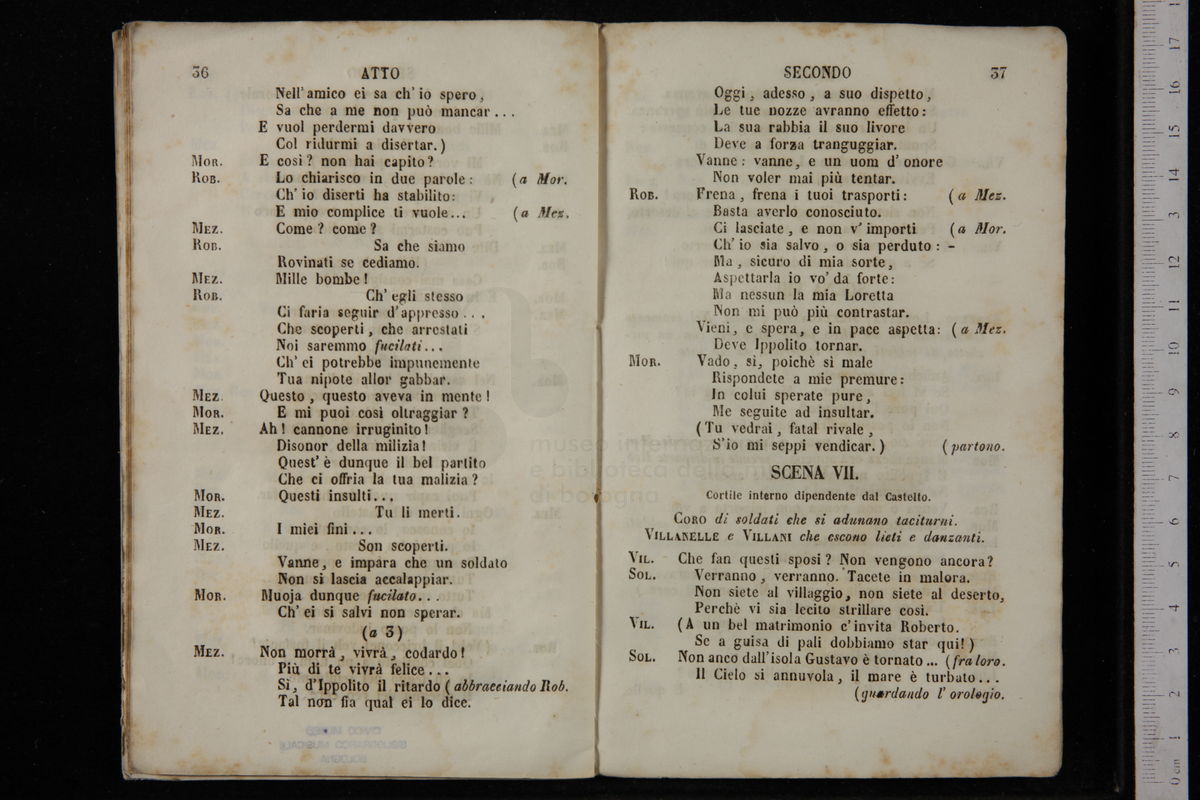 36
ATTO
Nell'amico ei sa ch'io spero,
Sa che a me non può mancar...
E vuol perdermi davvero
Col ridurmi a disertar.)
MOR. E così? non hai capito?
ROB. Lo chiarisco in due parole: (a Mor.
Ch'io diserti ha stabilito:
E mio complice ti vuole... (a Mez.
MEZ. Come? come?
ROB. Sa che siamo
Rovinati se cediamo.
MEZ. Mille bombe!
ROB. Ch'egli stesso
Ci faria seguir d'appresso...
Che scoperti, che arrestati
Noi saremmo fucilati...
Ch'ei potrebbe impunemente
Tua nipote allor gabbar.
MEZ. Questo, questo aveva in mente!
MOR. E mi puoi così oltraggiar?
MEZ. Ah! cannone irruginito!
Disonor della milizia!
Quest'è dunque il bel partito
Che ci offria la tua malizia?
MOR. Questi insulti...
MEZ. Tu li merti.
MOR. I miei fini...
MEZ. Son scoperti.
Vanne, e impara che un soldato
Non si lascia accalappiar.
MOR. Muoja dunque fucilato...
Ch'ei si salvi non sperar.
(a 3)
MEZ. Non morrà, vivrà, codardo!
Più di te vivrà felice...
Sì, d'Ippolito il ritardo (abbracciando Rob.
Tal non fia qual ei lo dice.
CIVICO MUSEO
BIBLIOGRAFICO MUSICALE
BOLOGNA
SECONDO
37
Oggi, adesso, a suo dispetto,
Le tue nozze avranno effetto:
La sua rabbia il suo livore
Deve a forza tranguggiar.
Vanne: vanne, e un uom d'onore
Non voler mai più tentar.
ROB. Frena, frena i tuoi trasporti: (a Mez.
Basta averlo conosciuto.
Ci lasciate, e non v'importi (a Mor.
Ch'io sia salvo, o sia perduto: -
Ma, sicuro di mia sorte,
Aspettarla io vo' da forte:
Ma nessun la mia Loretta
Non mi può più contrastar.
Vieni, e spera, e in pace aspetta: (a Mez.
Deve Ippolito tornar.
MOR. Vado, sì, poichè sì male
Rispondete a mie premure:
In colui sperate pure,
Me seguite ad insultar.
(Tu vedrai, fatal rivale,
S'io mi seppi vendicar.) (partono.
SCENA VII.
Cortile interno dipendente dal Castello.
CORO di soldati che si adunano taciturni.
VILLANELLE e VILLANI che escono lieti e danzanti.
VIL. Che fan questi sposi? Non vengono ancora?
SOL. Verranno, verranno. Tacete in malora.
Non siete al villaggio, non siete al deserto,
Perchè vi sia lecito strillare così.
VIL. (A un bel matrimonio c'invita Roberto.
Se a guisa di pali dobbiamo star qui!)
SOL. Non anco dall'isola Gustavo è tornato... (fra loro.
Il Cielo si annuvola, il mare è turbato...
(guardando l'orologio.